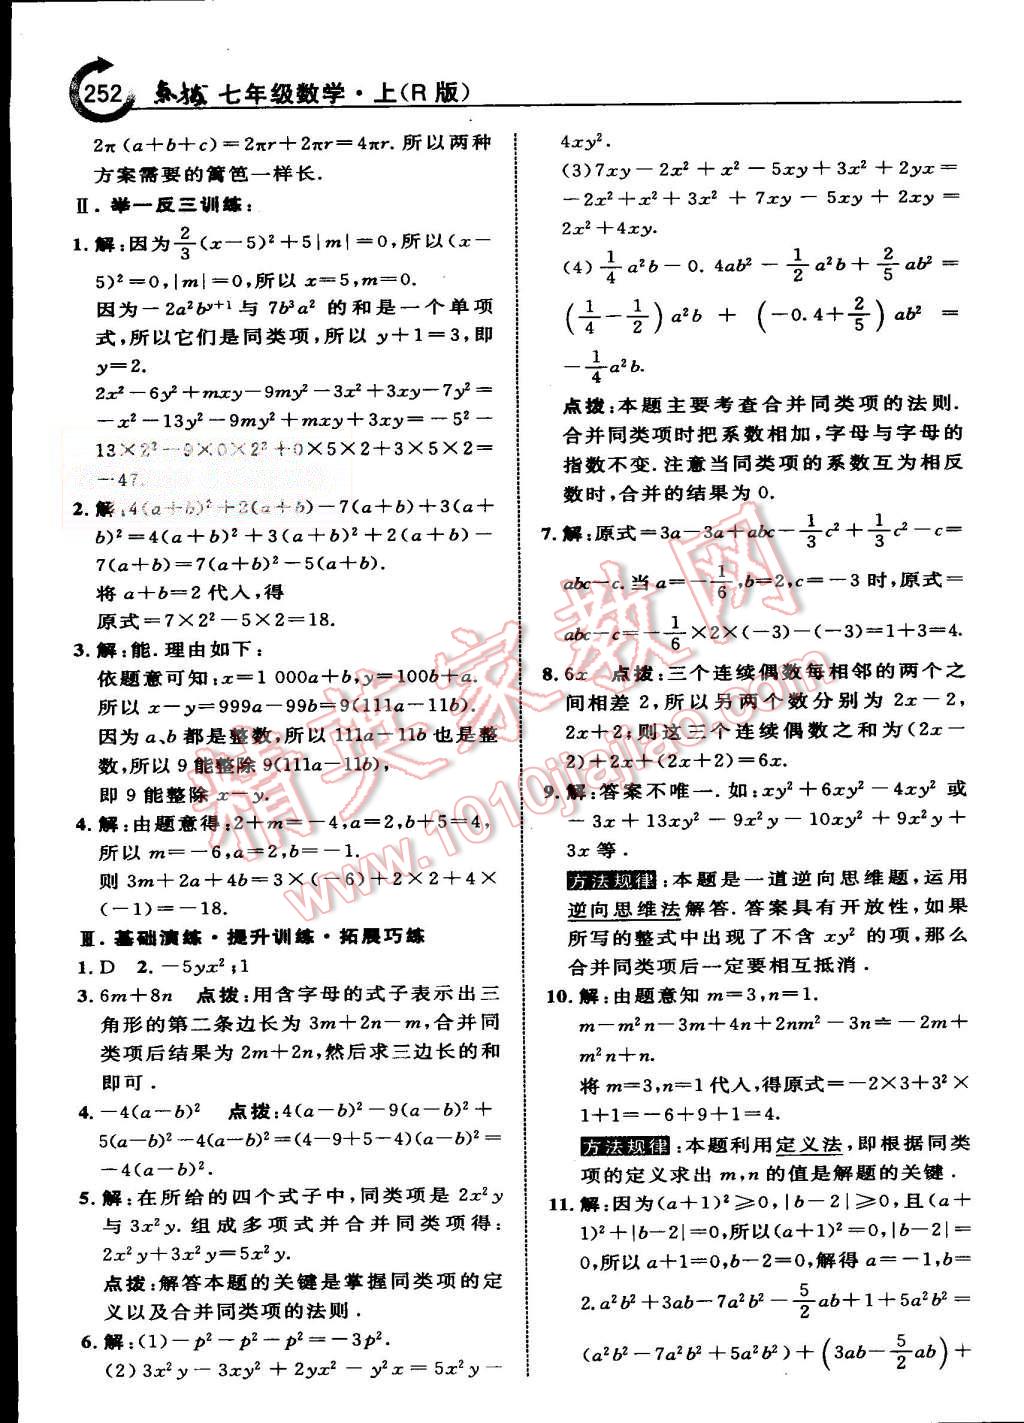 252 点拨 七年级数学·上(R版)
2π(a+b+c)=2πr+2πr=4πr.所以两种
方案需要的篱笆一样长.
Ⅱ.举一反三训练:
1.解:因为2/3(x-5)²+5|m|=0,所以(x-
5)²=0,|m|=0,所以x=5,m=0.
因为-2a²bʸ⁺¹与7b³a²的和是一个单项
式,所以它们是同类项,所以y+1=3,即
y=2.
2x²-6y²+mxy-9my²-3x²+3xy-7y²=
-x²-13y²-9my²+mxy+3xy=-5²-
13×2²-9×0×2²+0×5×2+3×5×2=
-47.
2.解:4(a+b)²+2(a+b)-7(a+b)+3(a+
b)²=4(a+b)²+3(a+b)²+2(a+b)-
7(a+b)=7(a+b)²-5(a+b).
将a+b=2代入,得
原式=7×2²-5×2=18.
3.解:能.理由如下:
依题意可知:x=1 000a+b,y=100b+a.
所以x-y=999a-99b=9(111a-11b).
因为a、b都是整数,所以111a-11b也是整
数,所以9能整除9(111a-11b),
即9能整除x-y.
4.解:由题意得:2+m=-4,a=2,b+5=4,
所以m=-6,a=2,b=-1.
则3m+2a+4b=3×(-6)+2×2+4×
(-1)=-18.
Ⅲ.基础演练·提升训练·拓展巧练
1.D 2.-5yx²;1
3.6m+8n 点拨:用含字母的式子表示出三
角形的第二条边长为3m+2n-m,合并同
类项后结果为2m+2n,然后求三边长的和
即可.
4.-4(a-b)² 点拨:4(a-b)²-9(a-b)²+
5(a-b)²-4(a-b)²=(4-9+5-4)(a-b)²=
-4(a-b)².
5.解:在所给的四个式子中,同类项是2x²y
与3x²y.组成多项式并合并同类项得:
2x²y+3x²y=5x²y.
点拨:解答本题的关键是掌握同类项的定
义以及合并同类项的法则.
6.解:(1)-p²-p²-p²=-3p².
(2)3x²y-3xy²+2yx²-y²x=5x²y-
4xy².
(3)7xy-2x²+x²-5xy+3x²+2yx=
-2x²+x²+3x²+7xy-5xy+2xy=
2x²+4xy.
(4)1/4a²b-0.4ab²-1/2a²b+2/5ab²=
(1/4-1/2)a²b+(-0.4+2/5)ab²=
-1/4a²b.
点拨:本题主要考查合并同类项的法则.
合并同类项时把系数相加,字母与字母的
指数不变.注意当同类项的系数互为相反
数时,合并的结果为0.
7.解:原式=3a-3a+abc-1/3c²+1/3c²-c=
abc-c.当a=-1/6,b=2,c=-3时,原式=
abc-c=-1/6×2×(-3)-(-3)=1+3=4.
8.6x 点拨:三个连续偶数每相邻的两个之
间相差2,所以另两个数分别为2x-2,
2x+2;则这三个连续偶数之和为(2x-
2)+2x+(2x+2)=6x.
9.解:答案不唯一.如:xy²+6xy²-4xy²或
-3x+13xy²-9x²y-10xy²+9x²y+
3x等.
方法规律:本题是一道逆向思维题,运用
逆向思维法解答.答案具有开放性,如果
所写的整式中出现了不含xy²的项,那么
合并同类项后一定要相互抵消.
10.解:由题意知m=3,n=1.
m-m²n-3m+4n+2nm²-3n=-2m+
m²n+n.
将m=3,n=1代入,得原式=-2×3+3²×
1+1=-6+9+1=4.
方法规律:本题利用定义法,即根据同类
项的定义求出m,n的值是解题的关键.
11.解:因为(a+1)²≥0,|b-2|≥0,且(a+
1)²+|b-2|=0,所以(a+1)²=0,|b-2|=
0,所以a+1=0,b-2=0,解得a=-1,b=
2.a²b²+3ab-7a²b²-5/2ab+1+5a²b²=
(a²b²-7a²b²+5a²b²)+(3ab-5/2ab)+
精英家教网
www.1010jiajiao.com